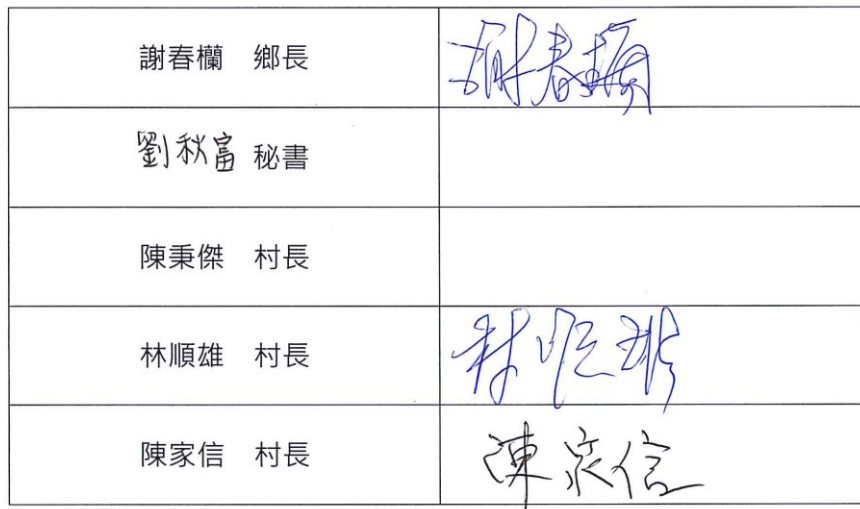 謝春欗　鄉長　謝春欗
劉秋富 秘書
陳秉傑　村長
林順雄　村長　林順雄
陳家信　村長　陳家信